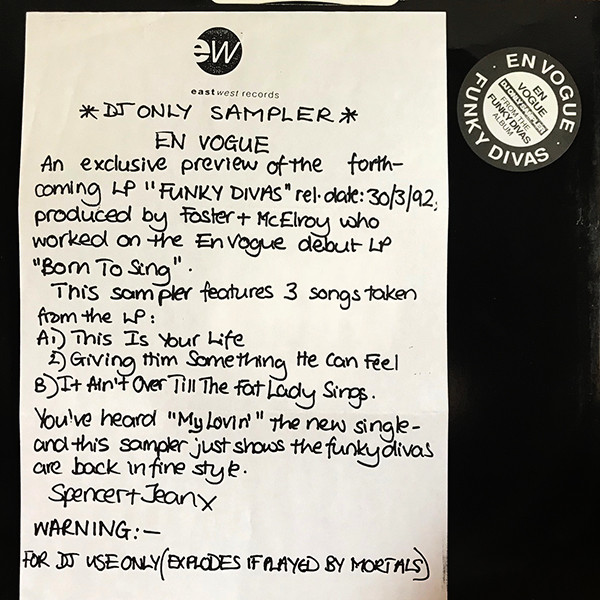 ew
eastwest records
*DJ ONLY SAMPLER*
EN VOGUE
An exclusive preview of the forth-
coming LP "FUNKY DIVAS" rel.date: 30/3/92,
produced by Foster + McElroy who
worked on the En Vogue debut LP
"Born To Sing".
This sampler features 3 songs taken
from the LP:
A1) This Is Your Life
2) Giving Him Something He Can Feel
B) It Ain't Over Till The Fat Lady Sings.
You've heard "My Lovin'" the new single-
and this sampler just shows the funky divas
are back in fine style.
Spencer + Jean x
WARNING:-
FOR DJ USE ONLY (EXPLODES IF PLAYED BY MORTALS)
EN VOGUE
FUNKY DIVAS
EN
VOGUE
DJ ONLY SAMPLER
FROM THE
FUNKY DIVAS
ALBUM